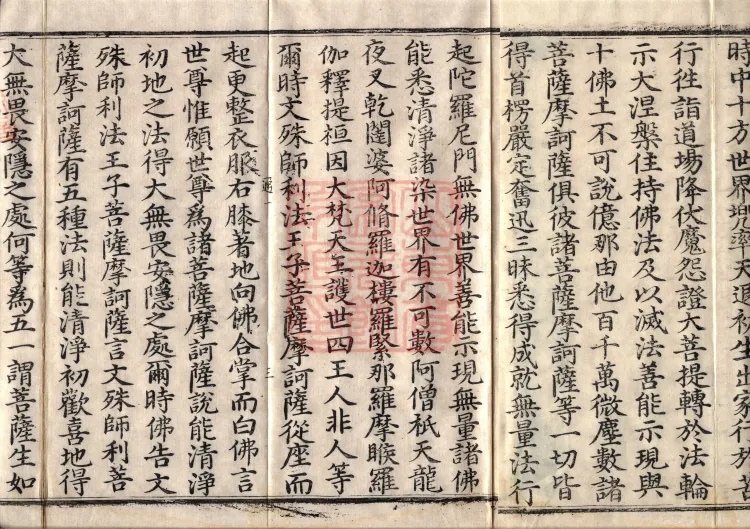 時中十方世界兜率天退初生出家行於苦
行往詣道場降伏魔怨證大菩提轉於法輪
示大涅槃住持佛法及以滅法善能示現與
十佛土不可說億那由他百千萬微塵數諸
菩薩摩訶薩俱彼諸菩薩摩訶薩等一切皆
得首楞嚴定奮迅三昧悉得成就無量法行
起陀羅尼門無佛世界善能示現無量諸佛
能悉清淨諸染世界有不可數阿僧祇天龍
夜叉乾闥婆阿脩羅迦樓羅緊那羅摩睺羅
伽釋提桓因大梵天王護世四王人非人等
爾時文殊師利法王子菩薩摩訶薩從座而
起更整衣服右膝著地向佛合掌而白佛言
世尊惟願世尊為諸菩薩摩訶薩說能清淨
初地之法得大無畏安隱之處爾時佛告文
殊師利法王子菩薩摩訶薩言文殊師利菩
薩摩訶薩有五種法則能清淨初歡喜地得
大無畏安隱之處何等為五一謂菩薩生如